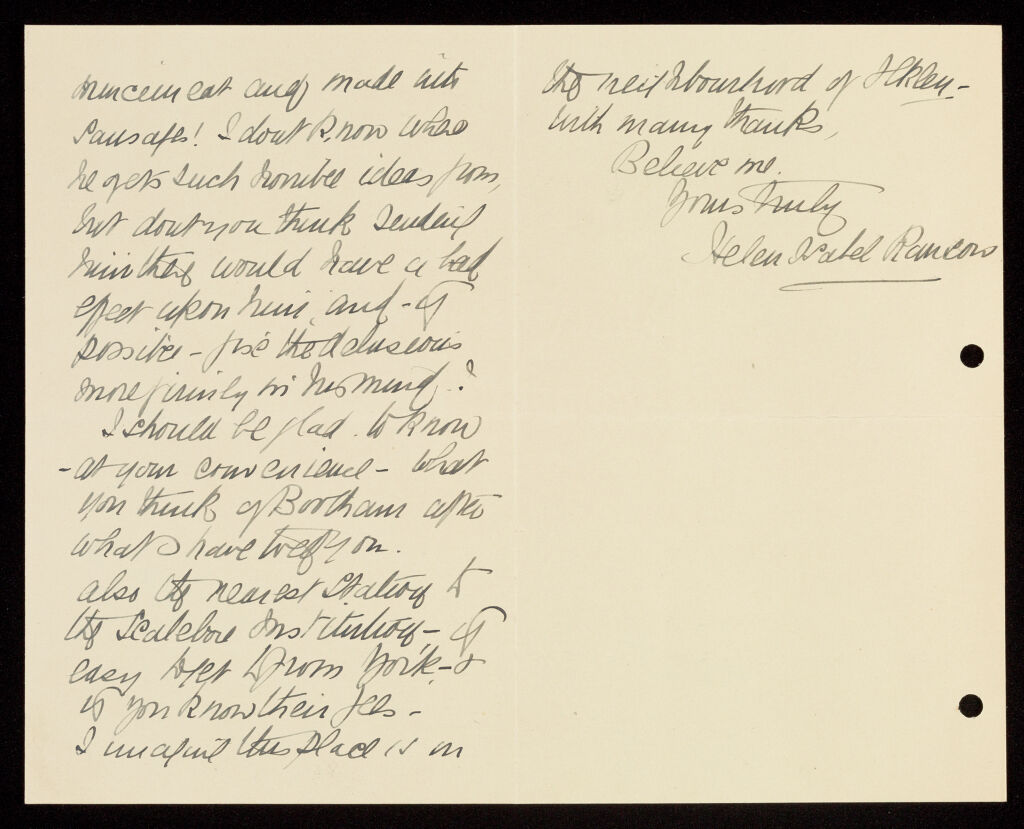 mincemeat and made into
sausages! I don't know where
he gets such horrible ideas from,
but don't you think sending
him there would have a bad
effect upon him, and - if
possible - fix the delusions
more firmly in his mind.?
I should be glad. to know
- at your convenience - what
you think of Bootham after
what I have told you.
also the nearest Station to
the Scalebor Institution - if
easy to get to from York - &
if you know their fees -
I imagine this place is in
the neighbourhood of Ilkley -
With many thanks,
Believe me.
Yours truly
Helen Isabel